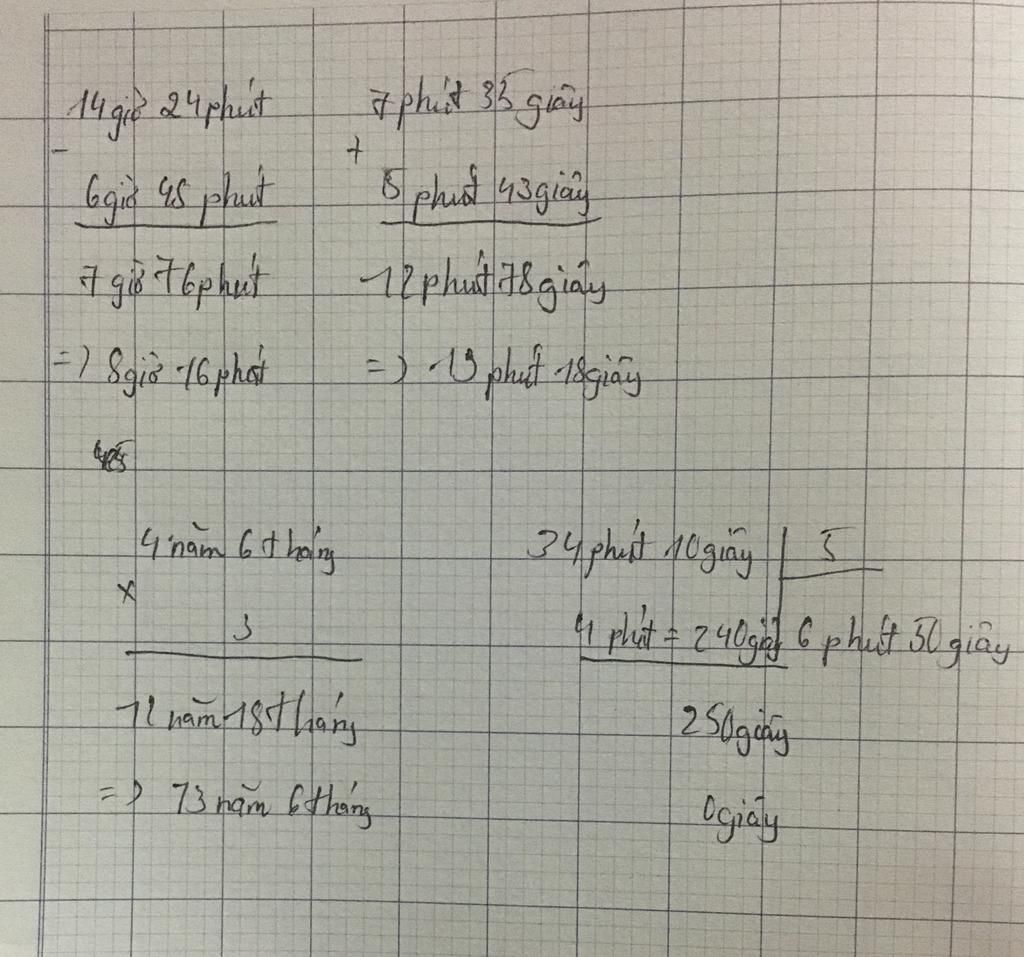 14 giờ 24 phút
-
6 giờ 48 phút
7 giờ 76 phút
=) 8 giờ 16 phút
7 phút 35 giây
+
5 phút 43 giây
12 phút 78 giây
=) 13 phút 18 giây
4 năm 6 tháng
x
3
12 năm 18 tháng
=) 13 năm 6 tháng
34 phút 10 giây 5
4 phút = 240 giây 6 phút 50 giây
250 giây
0 giây